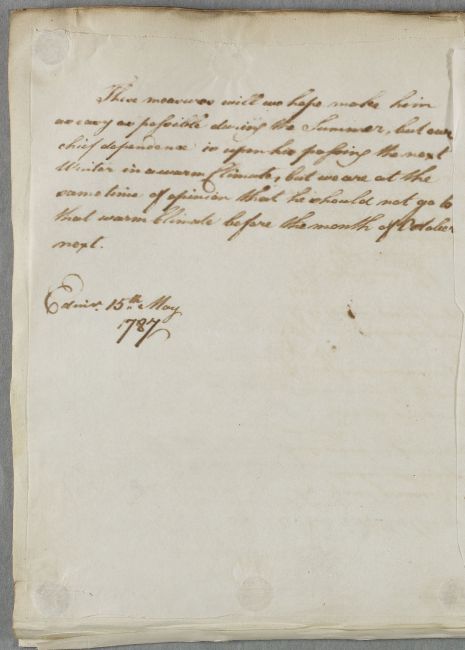 These measures will we hope make him
as easy as possible during the Summer, but our
chief dependence is upon his passing the next
Winter in a warm Climate, but we are at the
same time of opinion that he should not go to
that warm Climate before the month of October
next.
Edinr. 15th May
1787